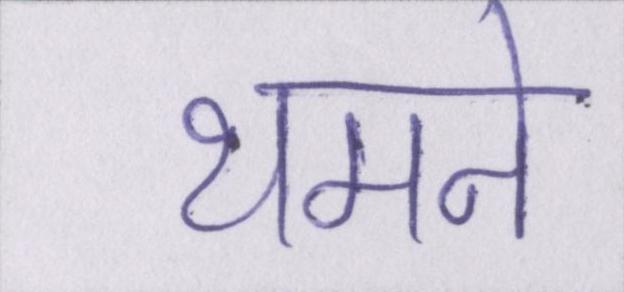 थमने